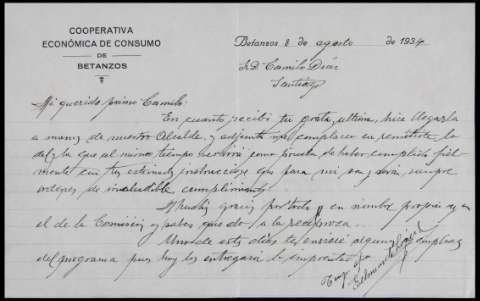 COOPERATIVA
ECONÓMICA DE CONSUMO
DE
BETANZOS
Betanzos 8 de agosto de 1934
Sr. D. Camilo Díaz
Santiago
Mi querido primo Camilo:
En cuanto recibí tu grata última, hice llegarla
a manos de nuestro Alcalde, y adjunto complacer en remitirte la
del que al mismo tiempo servirá como prueba de haber cumplido fiel
mente con tus instrucciones que para mi son y serán siempre
ordenes de ineludible cumplimiento.
Muchas gracias por todo, en nombre propio y en
el de la Comisión y sabes que a la recíproca.
Uno de estos días te enviaré algunos ejemplares
del programa pues hoy los entregará la imprenta.